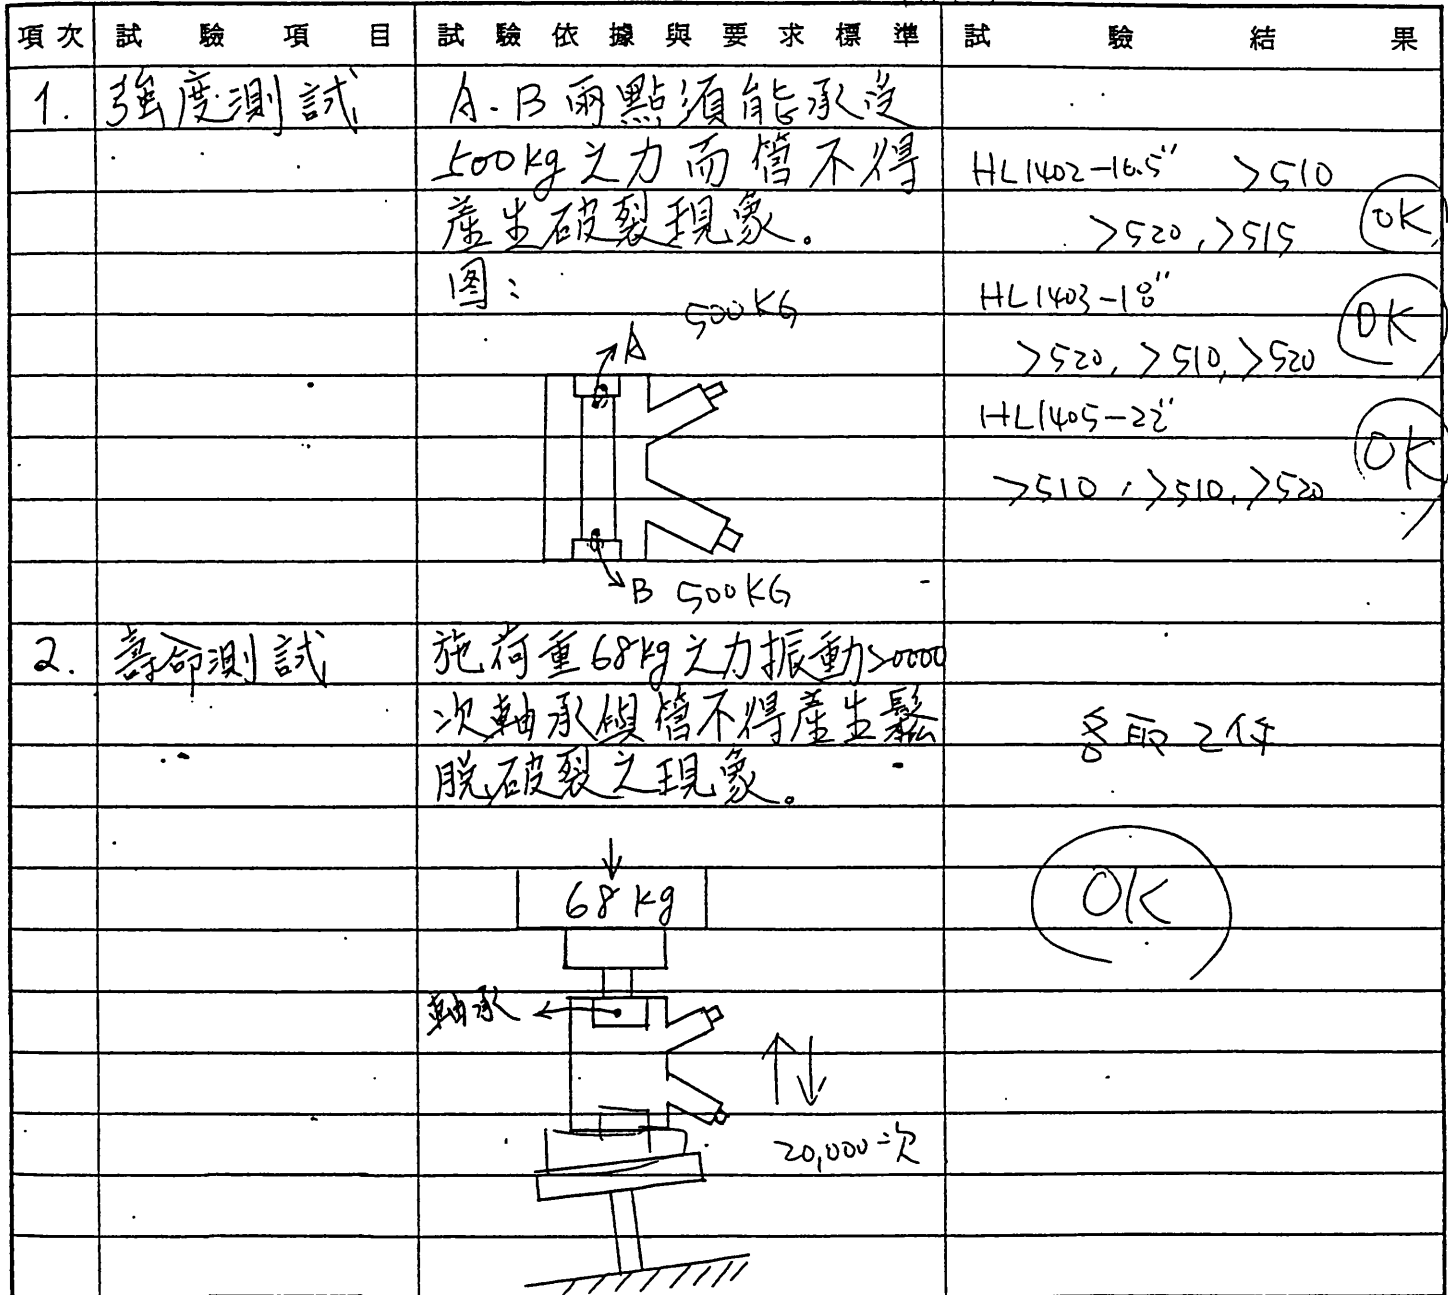 項次 試驗項目 試驗依據與要求標準 試驗結果
1. 強度測試 A.B兩點須能承受
500kg之力而管不得
產生破裂現象。
图:
500KG
A
B 500KG
HL1402-16.5" >510
>520, >515 OK
HL1403-18"
>520, >510, >520 OK
HL1405-22"
>510, >510, >520 OK
2. 壽命測試 施荷重68kg之力振動20000
次軸承與管不得產生鬆
脫破裂之現象。
各取2件
OK
68kg
軸承
20,000次